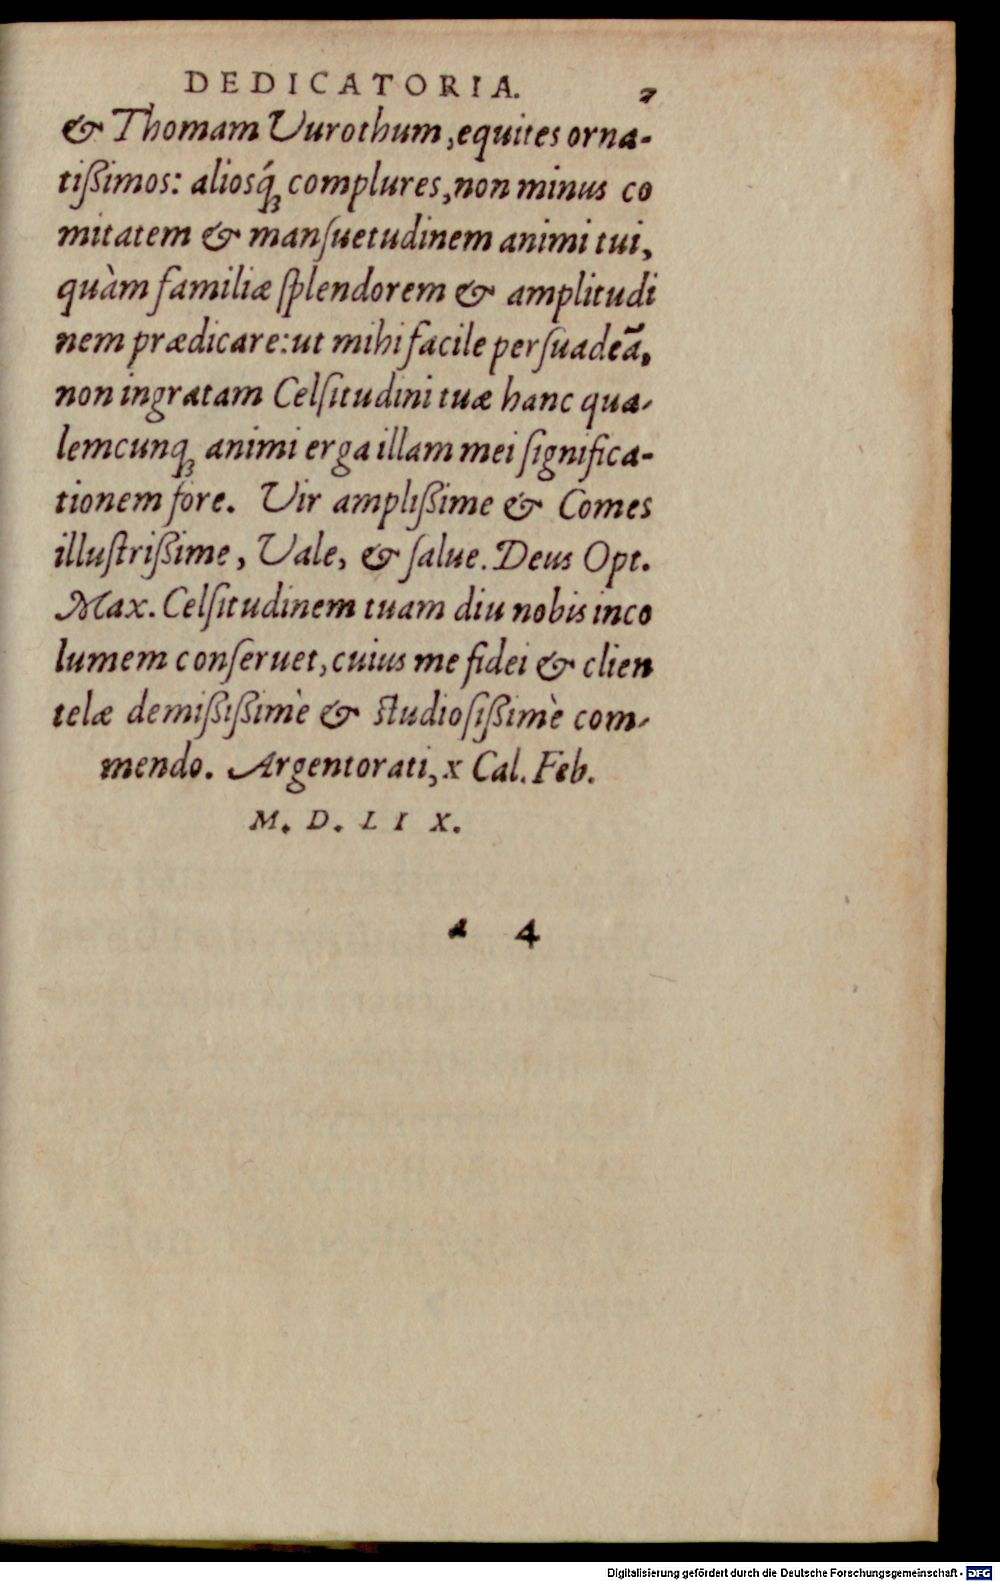 DEDICATORIA. 7
& Thomam Vurothum, equites orna-
tißimos: aliosq́ꝫ complures, non minus co
mitatem & manſuetudinem animi tui,
quàm familiæ ſplendorem & amplitudi
nem prædicare: ut mihi facile perſuadeā,
non ingratam Celſitudini tuæ hanc qua-
lemcunqꝫ animi erga illam mei ſignifica-
tionem fore. Vir amplißime & Comes
illuſtrißime, Vale, & ſalue. Deus Opt.
Max. Celſitudinem tuam diu nobis inco
lumem conſeruet, cuius me fidei & clien
telæ demißißimè & ſtudioſißimè com-
mendo. Argentorati, x Cal. Feb.
M. D. L I X.
a 4
Digitalisierung gefördert durch die Deutsche Forschungsgemeinschaft - DFG